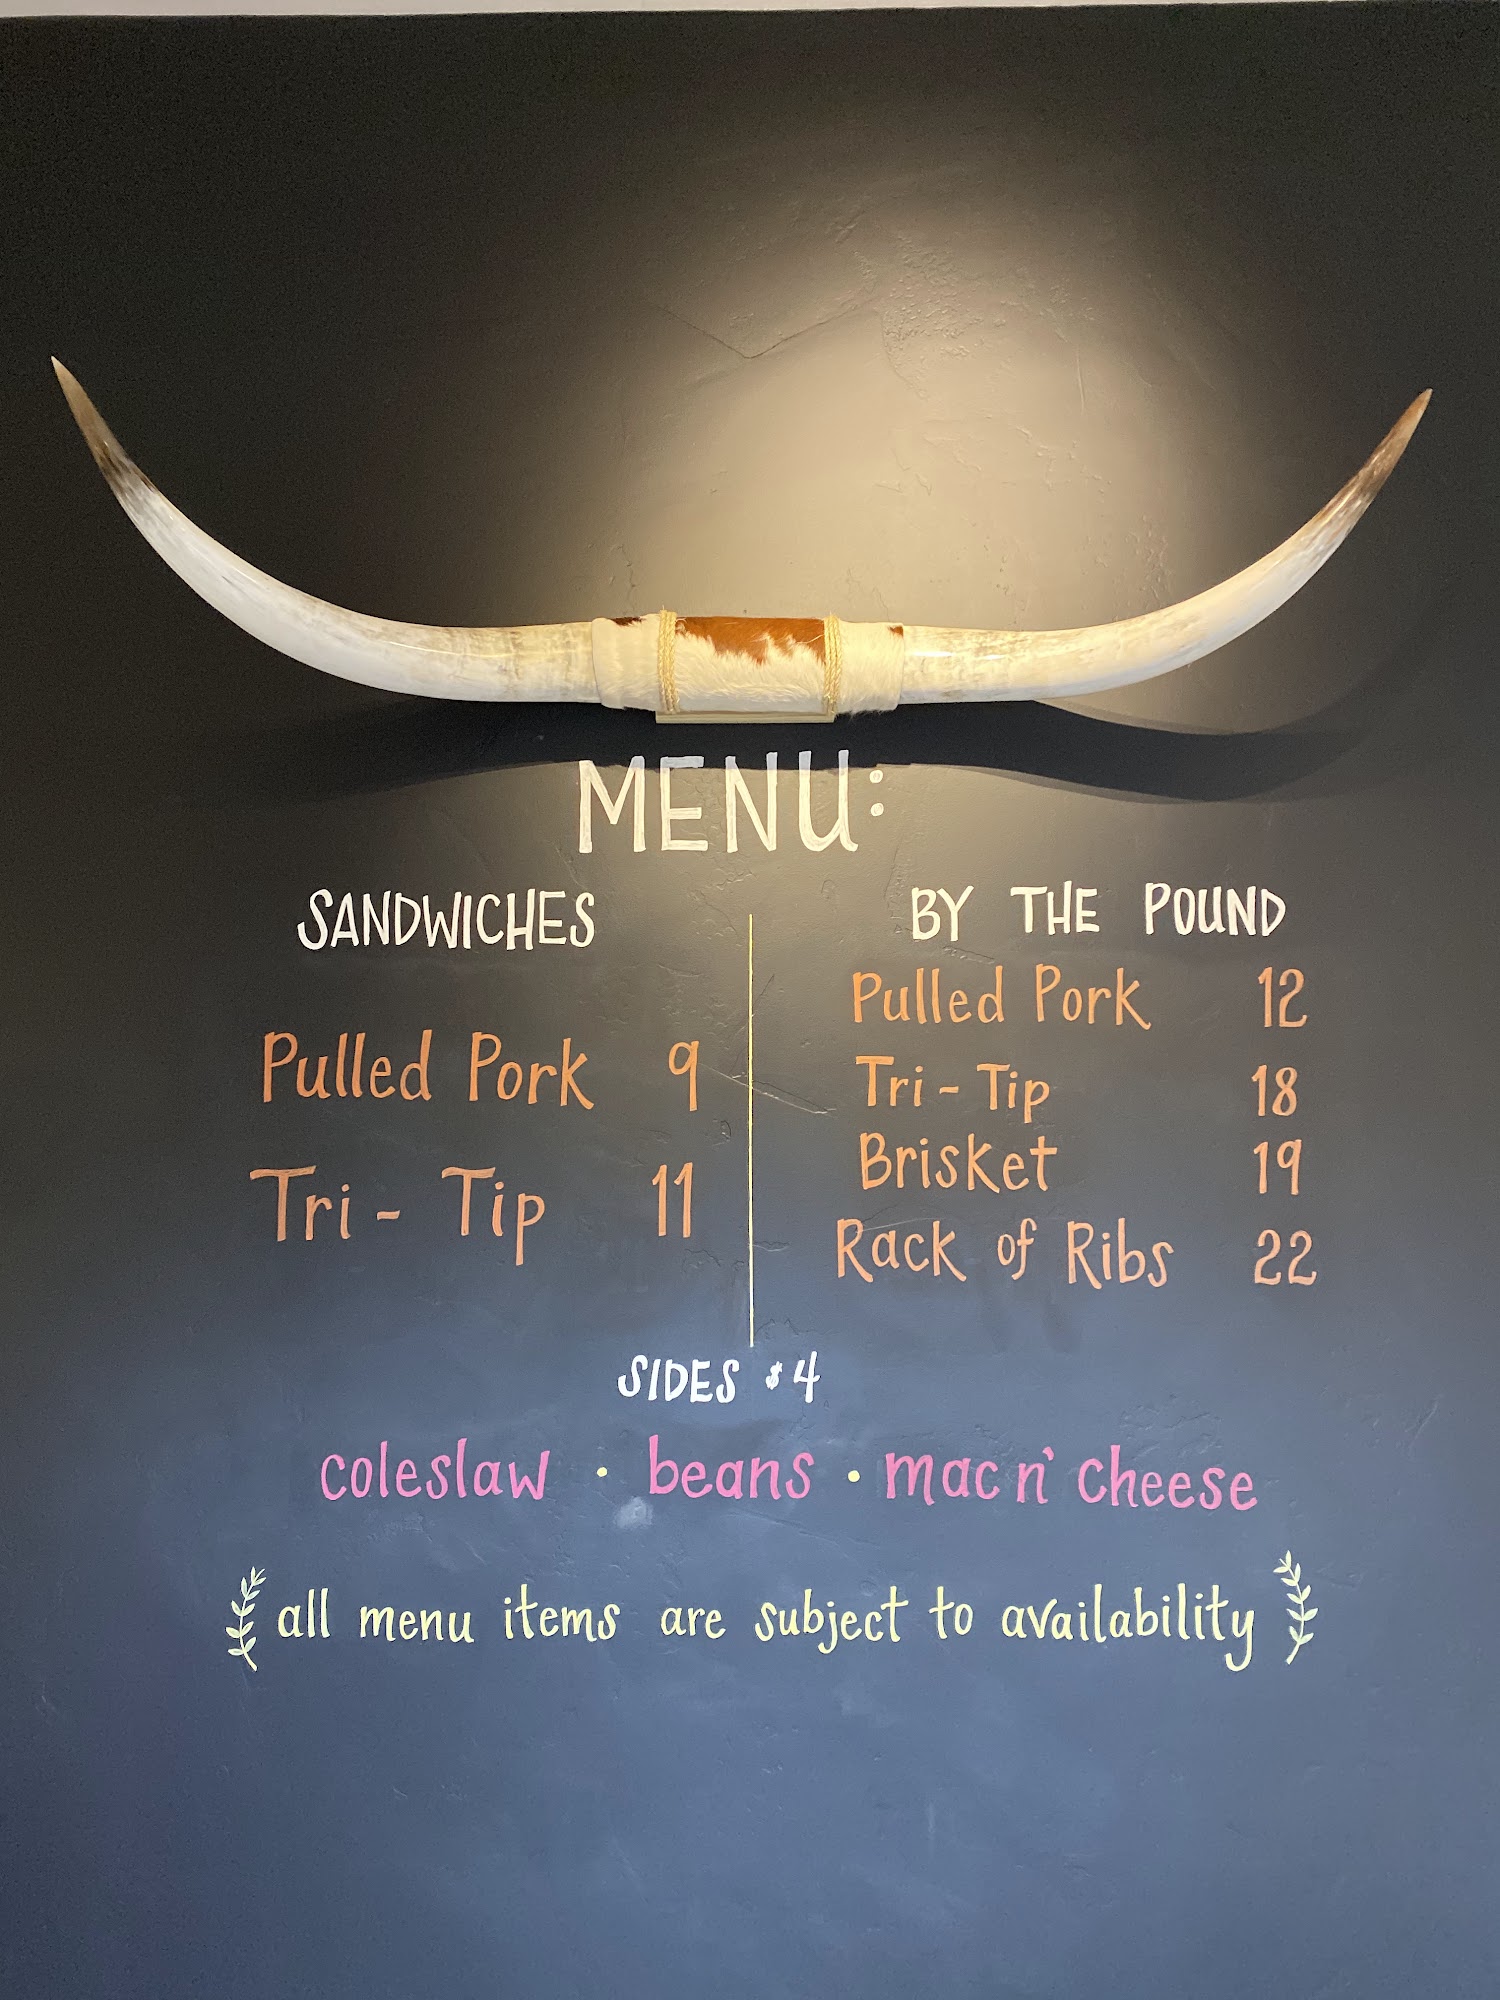 MENU:
SANDWICHES
Pulled Pork 9
Tri-Tip 11
BY THE POUND
Pulled Pork 12
Tri-Tip 18
Brisket 19
Rack of Ribs 22
SIDES $4
coleslaw • beans • mac n' cheese
all menu items are subject to availability